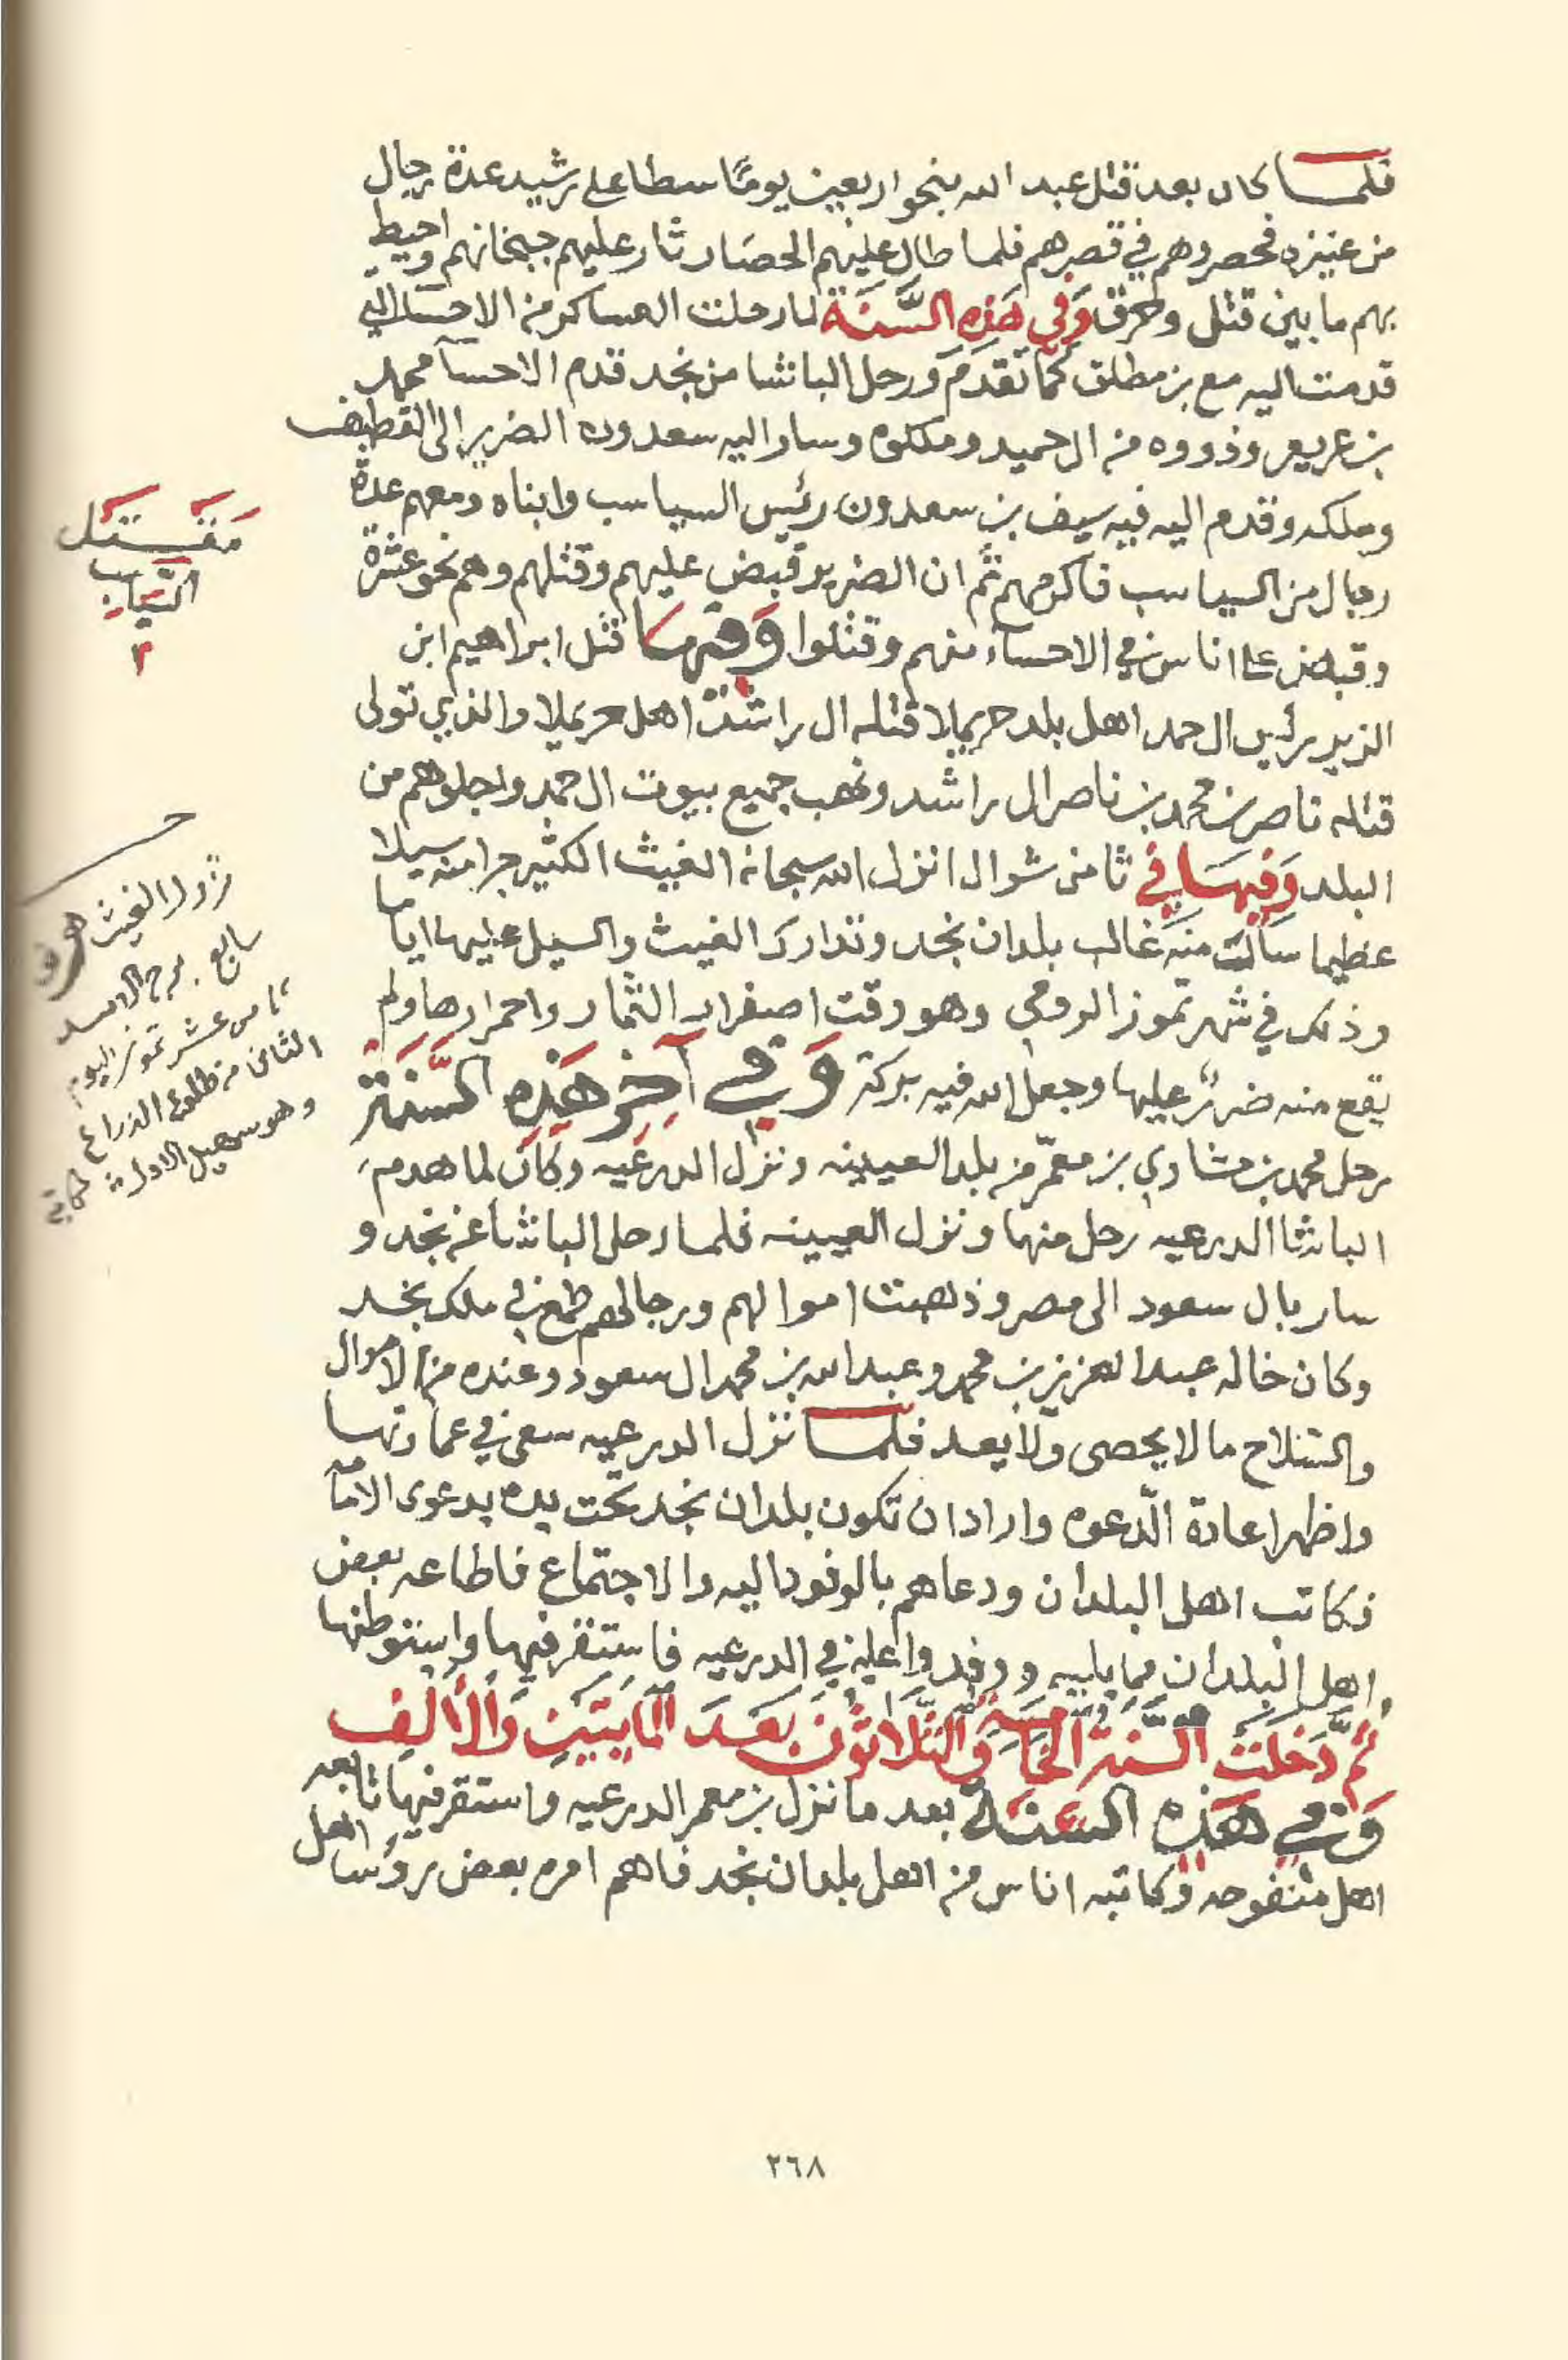 فلما كان بعد قتل عبد الله بنحو اربعين يومًا سطا على رشيد عدة رجال
من عنيزه فحصروهم في قصرهم فلما طال عليهم الحصار ثار عليهم جبخانهم واحيط
بهم ما بين قتل وحرق وَفي هَذِه السَّنَة لما رحلت العساكر من الاحسا التي
قدمت اليه مع بن مطلق كما تقدم ورحل الباشا من نجد قدم الاحسآ محمد
بن عريعر وذووه من ال حميد وملكوه وسار اليه سعدون الضرير الى القطيف
وملكه وقدم اليه فيه سيف بن سعدون رئيس السياسب وابناه ومعهم عدة
رجال من السياسب فاكرمهم ثم ان الضرير قبض عليهم وقتلهم وهم نحو عشرة
وقبض على اناس في الاحساء منهم وقتلوا وَفيها قتل ابراهيم ابن
الزير رئيس ال حمد اهل بلد حريملا قتله ال راشد اهل حريملا والذي تولى
قتله ناصر بن محمد بن ناصر ال راشد ونهب جميع بيوت ال حمد واجلوهم من
البلد وَفيهَا في ثامن شوال انزل الله سبحانه الغيث الكثير جرا منه سيلا
عظيما سالت منه غالب بلدان نجد وتدارك الغيث والسيل عليها اياما
وذلك في شهر تموز الرومي وهو وقت اصفرار الثمار واحمرارها ولم
يقع منه ضرر عليها وجعل الله فيه بركة وَفي آخِر هَذِه السَّنَة
رحل محمد بن مشاري بن معمّر من بلد العيينه ونزل الدرعيه وكان لما هدم
الباشا الدرعيه رحل منها ونزل العيينه فلما رحل الباشا عن نجد و
سار بال سعود الى مصر وذهبت اموالهم ورجالهم طمع في ملك نجد
وكان خاله عبد العزيز بن محمد وعبد الله بن محمد ال سعود وعنده من الاموال
والسلاح ما لا يحصى ولا يعد فلما نزل الدرعيه سعى في عمارتها
واظهر اعادة الدّعوه واراد ان تكون بلدان نجد تحت يده يدعوى الامامه
فكاتب اهل البلدان ودعاهم بالوفود اليه والاجتماع فاطاعه بعض
اهل البلدان مما يليه ووفدوا عليه في الدرعيه فاستقر فيها واستوطنها
ثُمَّ دَخَلَت السَّنَة الخَامِسَة وَالثَّلاثُونَ بَعَدَ المايَتَين وَالأَلف
وَفي هَذِه السَّنَة بعد ما نزل بن معمر الدرعيه واستقر فيها تابعه
اهل منفوحه وكاتبه اناس من اهل بلدان نجد فاهم امره بعض رؤسا اهل
مَقتَل
السَّياسب
نزول الغيث
سابع برج الاسد
ثامن عشر تموز اليوم
الثاني من طلوع الذراع
وهو سهيل الاول
٢٦٨